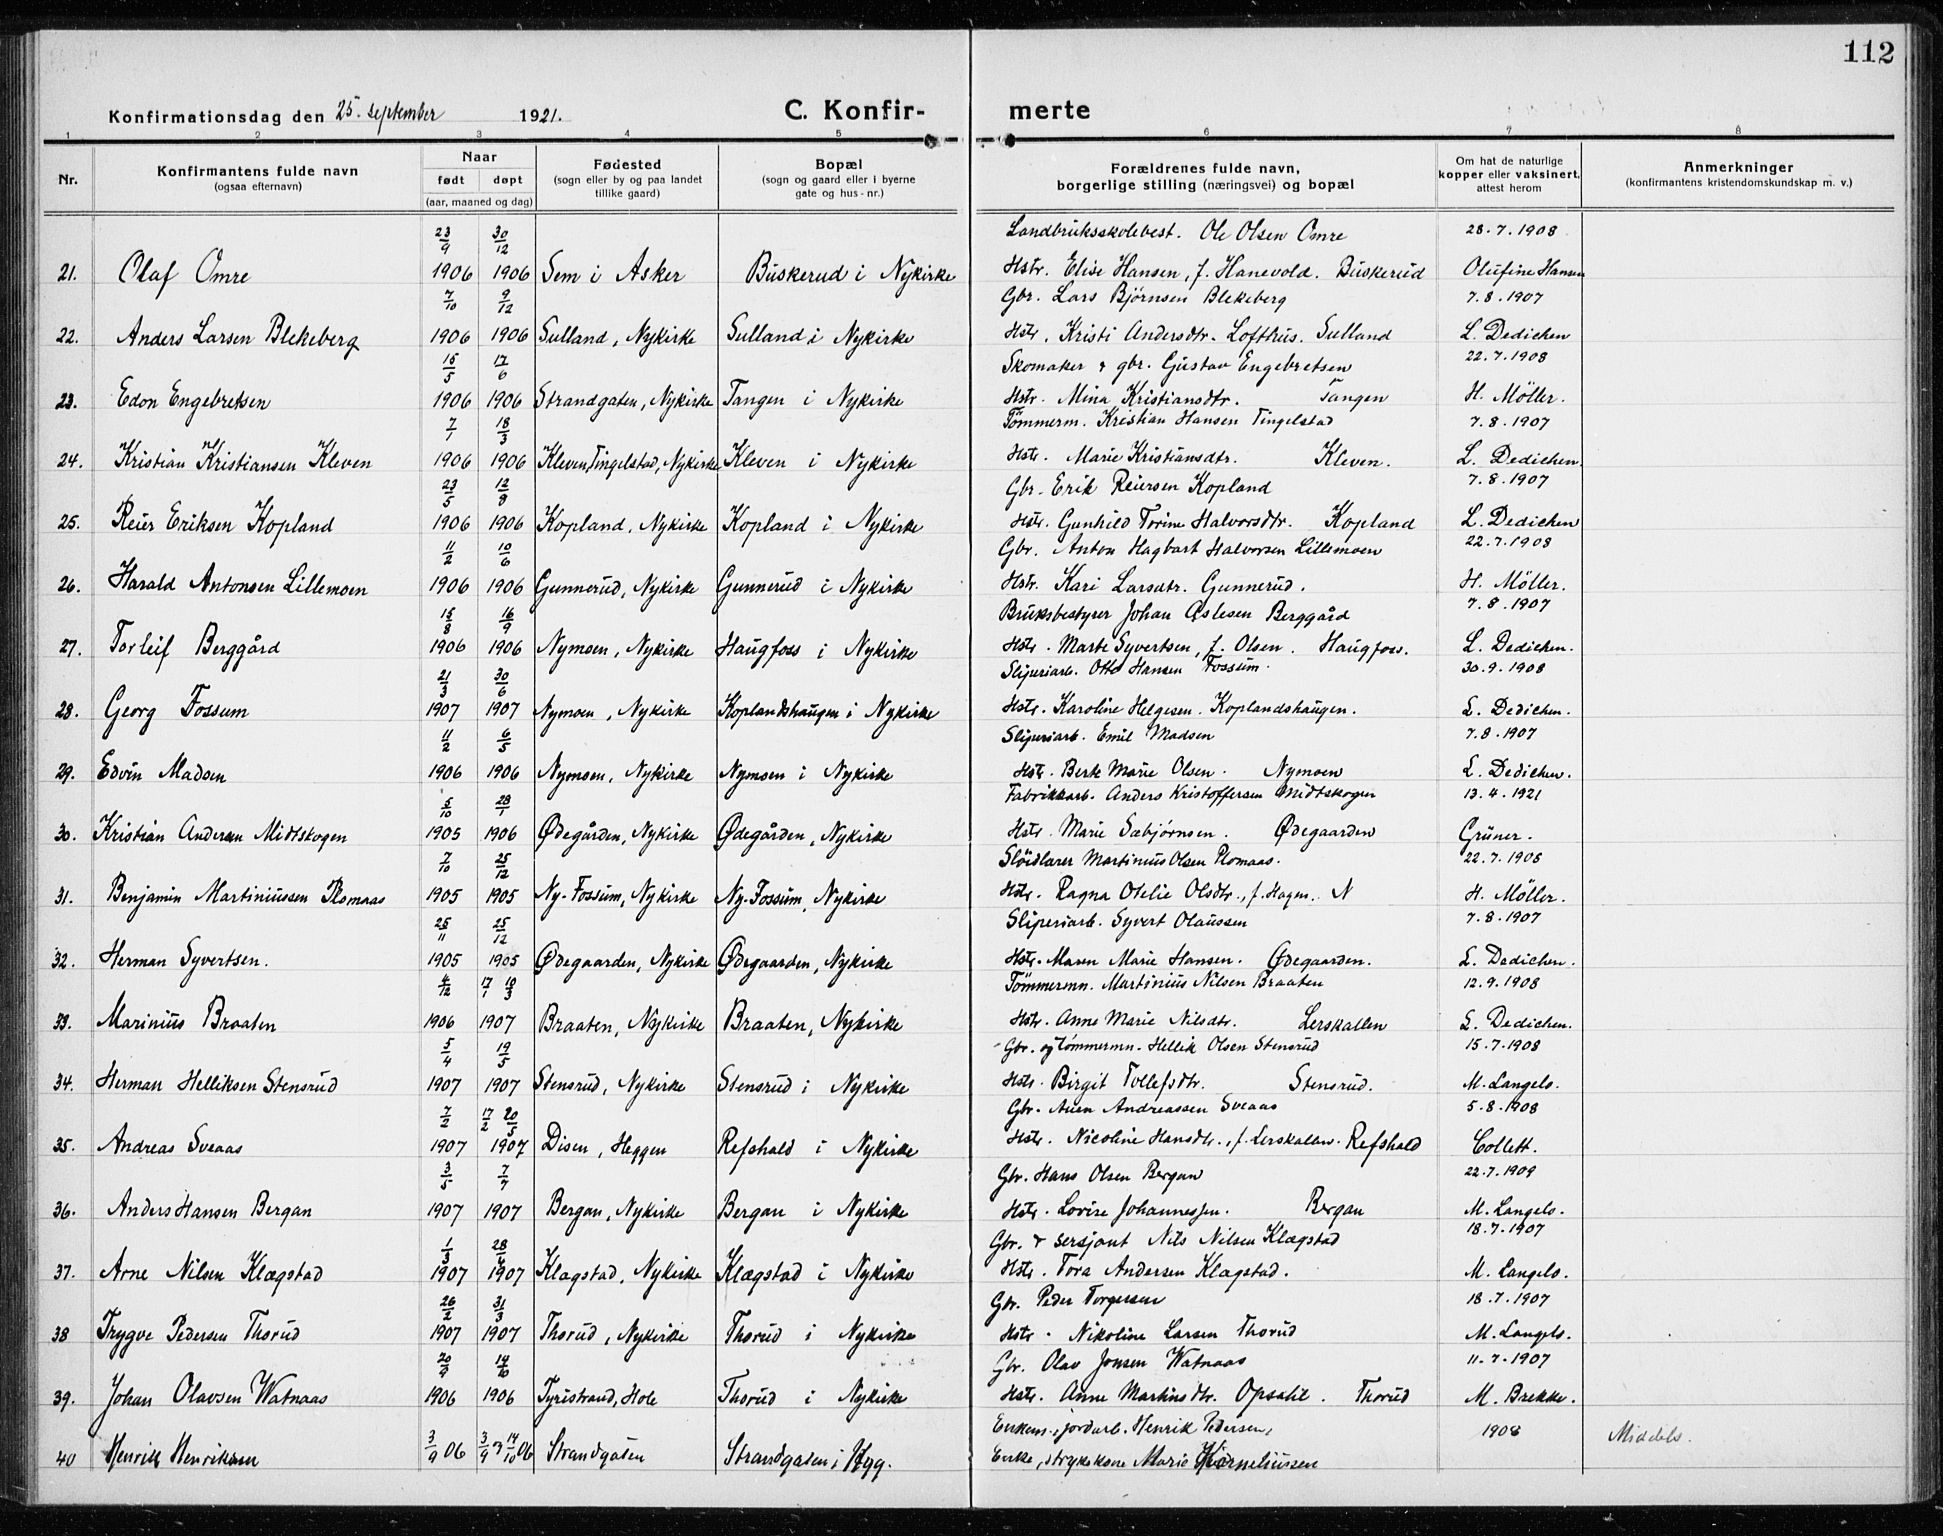 112
Konfirmationsdag den 25. september 1921. C. Konfirmerte
1 2 3 4 5 6 7 8
Nr. Konfirmantens fulde navn (ogsaa efternavn) Naar født døpt (aar, maaned og dag) Fødested (sogn eller by og paa landet tillike gaard) Bopæl (sogn og gaard eller i byerne gate og hus-nr.) Forældrenes fulde navn, borgerlige stilling (næringsvei) og bopæl Om hat de naturlige kopper eller vaksinert, attest herom Anmerkninger (konfirmantens kristendomskundskap m. v.)
23/9 30/12 Landbruksskolebest. Ole Olsen Omre 28.7.1908
21. Olaf Omre 1906 1906 Sem i Asker Buskerud i Nykirke Hstr. Elise Hansen, f. Hanevold. Buskerud Olufine Hansen
7/10 9/12 Gbr. Lars Bjørnsen Blekeberg 7.8.1907
22. Anders Larsen Blekeberg 1906 1906 Sulland, Nykirke Sulland i Nykirke Hstr. Kristi Andersdtr. Lofthus. Sulland L. Dedichen
15/5 17/6 Skomaker & gbr. Gustav Engebretsen 22.7.1908
23. Edon Engebretsen 1906 1906 Strandgaten, Nykirke Tangen i Nykirke Hstr. Mina Kristiansdtr. Tangen H. Möller.
7/1 18/3 Tømmerm. Kristian Hansen Tingelstad 7.8.1907
24. Kristian Kristiansen Kleven 1906 1906 Kleven, Tingelstad, Nykirke Kleven i Nykirke Hstr. Marie Kristiansdtr. Kleven. L. Dedichen.
23/5 12/8 Gbr. Erik Reiersen Kopland 7.8.1907
25. Reier Eriksen Kopland 1906 1906 Kopland, Nykirke Kopland i Nykirke Hstr. Gunhild Torine Halvorsdtr. Kopland L. Dedichen
11/2 10/6 Gbr. Anton Hagbart Halvorsen Lillemoen 22.7.1908
26. Harald Antonsen Lillemoen 1906 1906 Gunnerud, Nykirke Gunnerud i Nykirke Hstr. Kari Larsdtr. Gunnerud. H. Möller.
15/8 16/9 Bruksbestyrer Johan Aslesen Berggård 7.8.1907
27. Torleif Berggård 1906 1906 Nymoen, Nykirke Haugfoss i Nykirke Hstr. Marte Syvertsen, f. Olsen. Haugfoss. L. Dedichen.
21/3 30/6 Sliperiarb. Otto Hansen Fossum. 30.9.1908
28. Georg Fossum 1907 1907 Nymoen, Nykirke Koplandshaugen i Nykirke Hstr. Karoline Helgesen. Koplandshaugen. L. Dedichen.
11/2 6/5 Sliperiarb. Emil Madsen 7.8.1907
29. Edvin Madsen 1906 1906 Nymoen, Nykirke Nymoen i Nykirke Hstr. Berte Marie Olsen. Nymoen L. Dedichen.
5/10 28/1 Fabrikkarb. Anders Kristoffersen Midtskogen 13.4.1921
30. Kristian Andersen Midtskogen 1905 1906 Ødegården, Nykirke Ødegården, Nykirke Hstr. Marie Sæbjørnsen. Ødegaarden Grüner.
7/10 25/12 Slöidlærer Martinius Olsen Plomaas. 22.7.1908
31. Benjamin Martiniussen Plomaas 1905 1905 Ny-Fossum, Nykirke Ny-Fossum, Nykirke Hstr. Ragna Otelie Olsdtr., f. Hagen. N H. Möller.
25/11 25/12 Sliperiarb. Syvert Olaussen 7.8.1907
32. Herman Syvertsen. 1905 1905 Ødegaarden, Nykirke Ødegaarden, Nykirke Hstr. Maren Marie Hansen. Ødegaarden. L. Dedichen.
4/12 17/1 10/3 Tømmermn. Martinius Nilsen Braaten 12.9.1908
33. Marinius Braaten 1906 1907 Braaten, Nykirke Braaten, Nykirke Hstr. Anne Marie Nilsdtr. Lerskallen L. Dedichen.
5/4 19/5 Gbr. og tømmermn. Hellik Olsen Stensrud 15.7.1908
34. Herman Helliksen Stensrud 1907 1907 Stensrud, Nykirke Stensrud i Nykirke Hstr. Birgit Tollefsdtr. Stensrud. M. Langels.
7/2 17/2 20/5 Gbr. Auen Andreassen Sveaas 5.8.1908
35. Andreas Sveaas 1907 1907 Disen, Heggen Refshald i Nykirke Hstr. Nicoline Hansdtr., f. Lerskallen. Refshald Collett.
3/5 7/7 Gbr. Hans Olsen Bergan 22.7.1909
36. Anders Hansen Bergan 1907 1907 Bergan, Nykirke Bergan i Nykirke Hstr. Lovise Johannessen. Bergan M. Langels.
1/3 28/4 Gbr. & sersjant Nils Nilsen Klægstad 18.7.1907
37. Arne Nilsen Klægstad 1907 1907 Klægstad, Nykirke Klægstad i Nykirke Hstr. Tora Andersen Klægstad. M. Langels.
26/2 31/3 Gbr. Peder Torgersen 18.7.1907
38 Trygve Pedersen Thorud 1907 1907 Thorud, Nykirke Thorud i Nykirke Hstr. Nikoline Larsen Thorud M. Langels.
20/9 14/10 Gbr. Olav Jonsen Watnaas 11.7.1907
39. Johan Olavsen Watnaas 1906 1906 Tyristrand, Hole Thorud i Nykirke Hstr. Anne Martinsdtr. Opsahl. Thorud M. Brekke.
Enkem., jordarb. Henrik Pedersen, 1908 Middels.
40 Henrik Henriksen 3/9 06 3/9 14/10 06 Strandgaten Strandgaten i Nygg. Enke, strykekone Marie Korneliussen